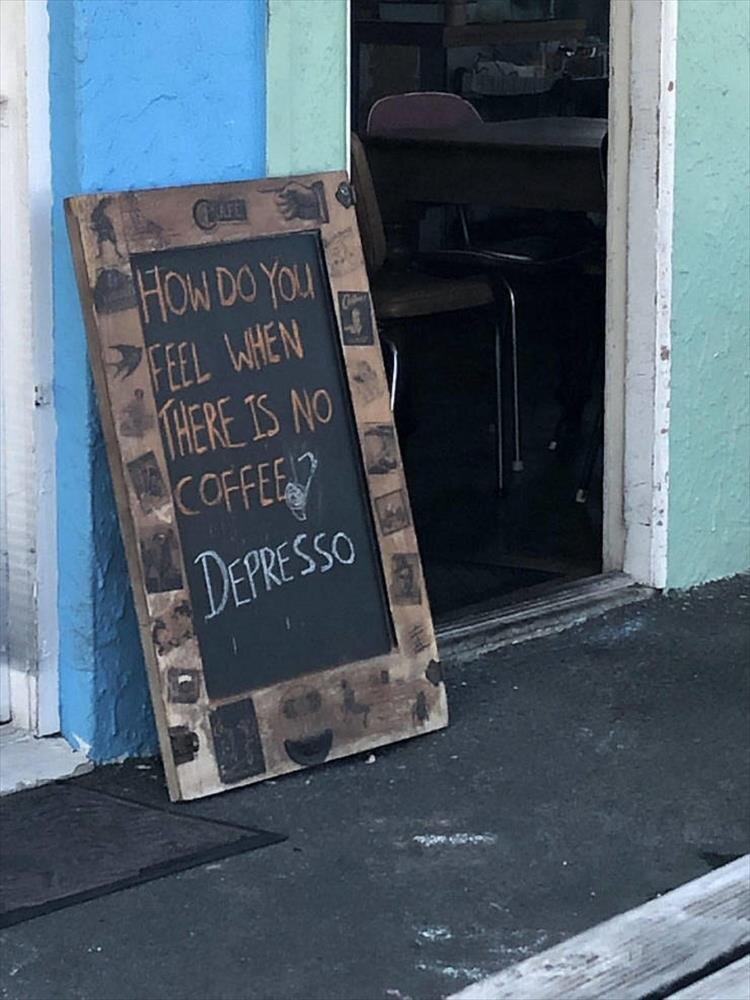 CAFE
HOW DO YOU
FEEL WHEN
THERE IS NO
COFFEE?
DEPRESSO